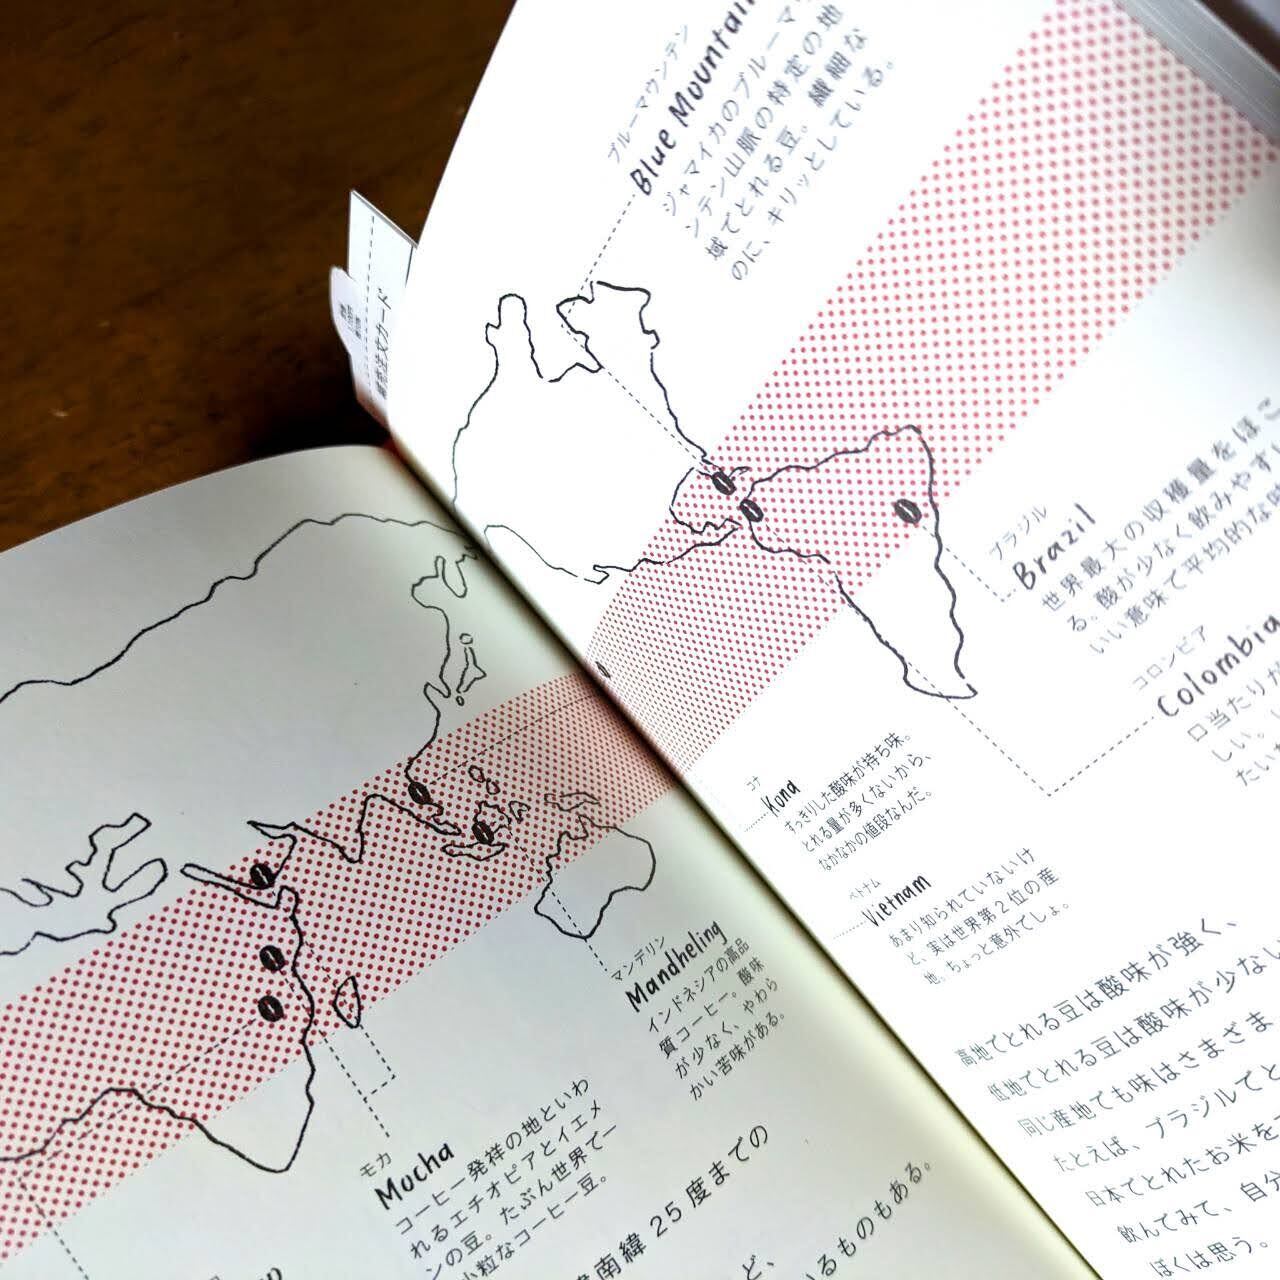 ブルーマウンテン
Blue Mountain
ジャマイカのブルーマ
ンテン山脈の特定の地
域でとれる豆。繊細な
のに、キリッとしている。
ブラジル
Brazil
世界最大の収穫量をほこ
る。酸が少なく飲みやすい
いい意味で平均的な味
コロンビア
Colombia
口当たりが
しい。
たい
コナ
Kona
すっきりした酸味が持ち味。
とれる量が多くないから、
なかなかの値段なんだ。
ベトナム
Vietnam
あまり知られていないけ
ど、実は世界第2位の産
地。ちょっと意外でしょ。
高地でとれる豆は酸味が強く、
低地でとれる豆は酸味が少ない
同じ産地でも味はさまざま
たとえば、ブラジルでと
日本でとれたお米を
飲んでみて、自分
ぼくは思う。
注文カード
マンデリン
Mandheling
インドネシアの高品
質コーヒー。酸味
が少なく、やわら
かい苦味がある。
モカ
Mocha
コーヒー発祥の地といわ
れるエチオピアとイエメ
ンの豆。たぶん世界で一
小粒なコーヒー豆。
南緯25度までの
ど、
いるものもある。